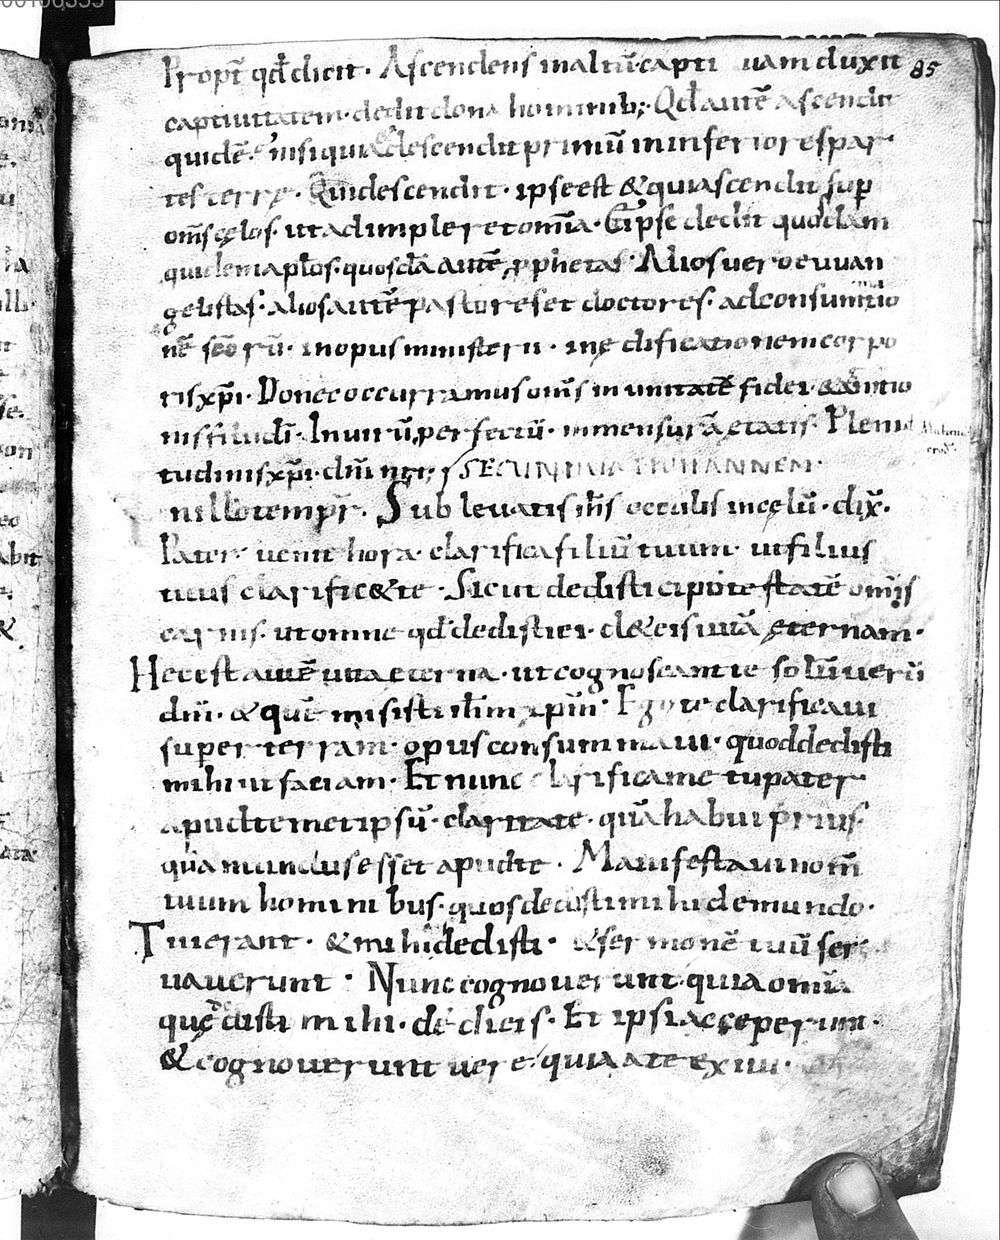 85
Propt̄ qđ dicit · Ascendens in altū · capti uam duxit
captiuitatem · dedit dona hominib; · Qđ autē ascendit
quidē · nisi quia descendit primū in inferiores par
tes terrę · Qui descendit · ipse est & qui ascendit sup̄
om̄s cęlos · ut adimpleret om̄ia · Et ipse dedit quosdam
quidem aplōs · quosdā autē p̱phetas · Alios uero euuan
gelistas · alios autē pastores et doctores · ad consummatio
nē sc̄ōrū · in opus ministerii · in ędificationem corpo
ris xp̄i · Donec occurramus om̄s in unitatē fidei · & agnitio
nis filii dī · In uirū perfectū · in mensurā ętatis · Pleni
tudinis xp̄i · dn̄i nr̄i · SECUNDUM IOHANNEM ·
n illo temp̄r · Subleuatis ih̄s occulis in cęlū · dix̄ ·
Pater uenit hora · clarifica filiū tuum · ut filius
tuus clarific&te · Sicut dedisti ei potestatē om̄is
carnis · ut omne qđ dedisti ei · d& eis uitā ęternam ·
Hec est autē uita eterna · ut cognoscam te solū uerū
dm̄ · & quē misisti ih̄m xp̄m · Ego te clarificaui
super terram · opus consummaui · quod dedisti
mihi ut faciam · Et nunc clarifica me tu pater
apud te met ipsū · claritate · quā habui prius
quā mundus esset apud te · Manifestaui nom̄
tuum hominibus · quos dedisti mihi de mundo ·
Tui erant · & mihi dedisti · & sermonē tuū ser
uauerunt · Nunc cognouerunt quia om̄ia
quę dedisti mihi · de dicis · Et ipsi acceperunt ·
& cognouerunt uere quia a te exiui ·